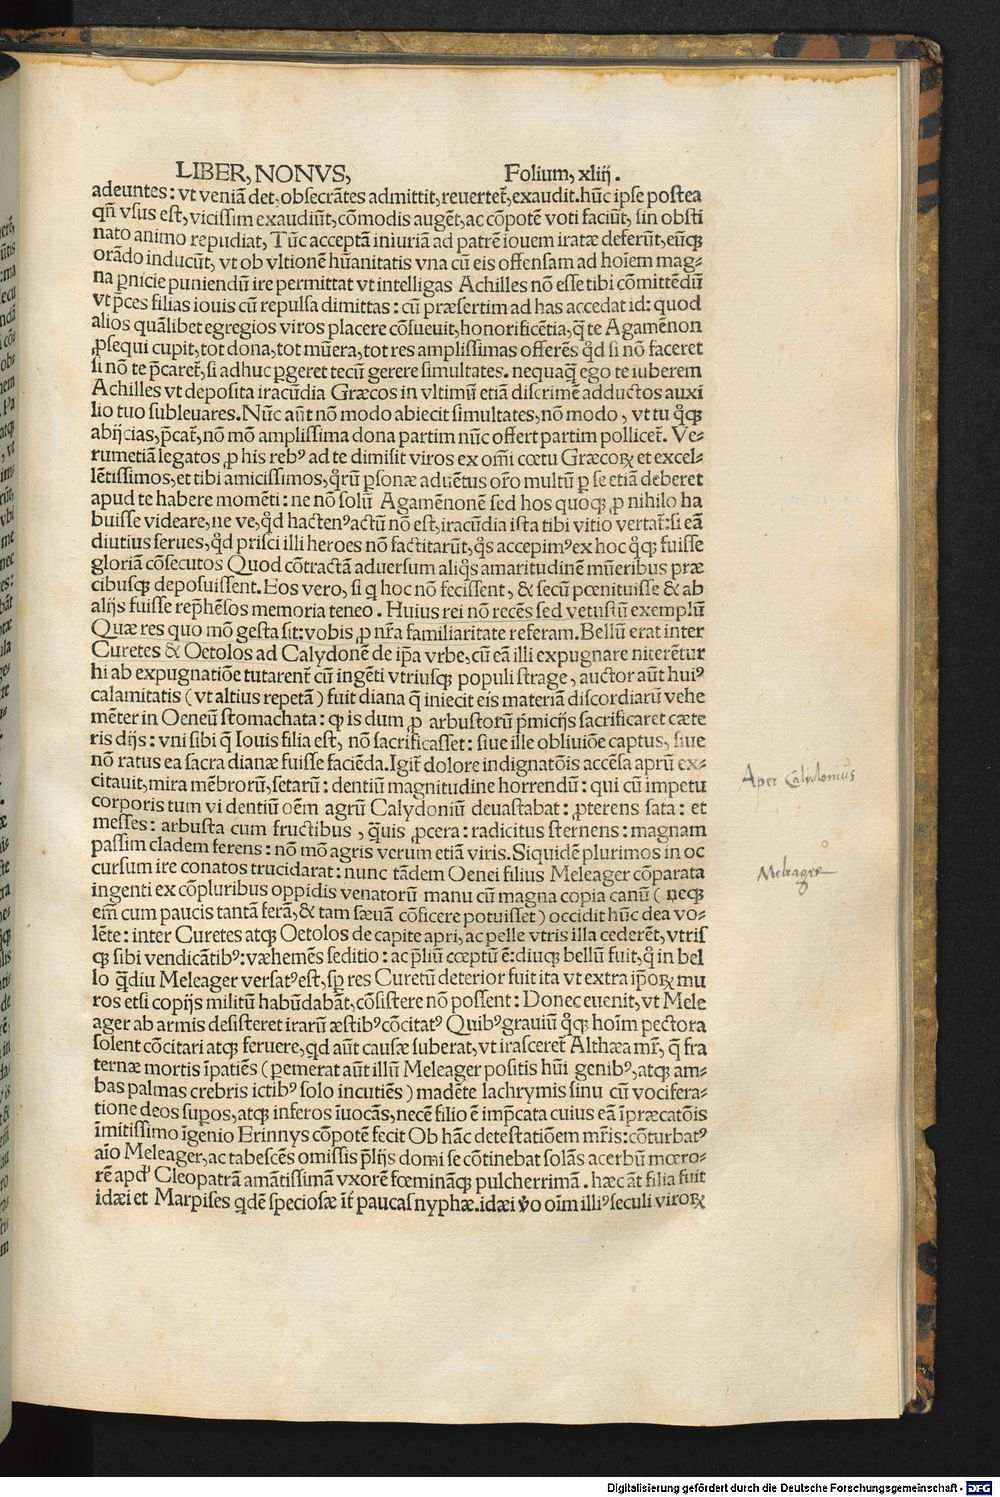 LIBER, NONVS,
Folium, xliij.
adeuntes: vt veniā det, obsecrātes admittit, reuertet̄, exaudit. hūc ipse postea
qn̄ vsus est, vicissim exaudiūt, cōmodis augēt, ac cōpotē voti faciūt, sin obsti
nato animo repudiat, Tūc acceptā iniuriā ad patrē iouem iratæ deferūt, eūqꝫ
orādo inducūt, vt ob vltionē hūanitatis vna cū eis offensam ad hoīem mag⸗
na ꝑnicie puniendū ire permittat vt intelligas Achilles nō esse tibi cōmittēdū
vt p̄ces filias iouis cū repulsa dimittas: cū præsertim ad has accedat id: quod
alios quālibet egregios viros placere cōsueuit, honorificētia, q̄ te Agamēnon
ꝓsequi cupit, tot dona, tot mūera, tot res amplissimas offerēs qd̄ si nō faceret
si nō te p̄caret̄, si adhuc ꝑgeret tecū gerere simultates. nequaq̄ ego te iuberem
Achilles vt deposita iracūdia Græcos in vltimū etiā discrimē adductos auxi
lio tuo subleuares. Nūc aūt nō modo abiecit simultates, nō modo, vt tu qͥqꝫ
abijcias, p̄cat̄, nō mō amplissima dona partim nūc offert partim pollicet̄. Ve⸗
rumetiā legatos, ꝓ his rebꝰ ad te dimisit viros ex om̄i cœtu Græcoꝝ et excel⸗
lētissimos, et tibi amicissimos, qͦrū ꝑsonæ aduētus or̄o multū ꝑ se etiā deberet
apud te habere momēti: ne nō solū Agamēnonē sed hos quoqꝫ, ꝓ nihilo ha
buisse videare, ne ve, qd̄ hactenꝰ actū nō est, iracūdia ista tibi vitio vertat̄: si eā
diutius serues, qd̄ prisci illi heroes nō factitarūt, qͦs accepimꝰ ex hoc qͥqꝫ fuisse
gloriā cōsecutos Quod cōtractā aduersum aliqͦs amaritudinē mūeribus præ
cibusqꝫ deposuissent. Eos vero, si q hoc nō fecissent, & secū pœnituisse & ab
alijs fuisse rep̄hēsos memoria teneo. Huius rei nō recēs sed vetustū exemplū
Quæ res quo mō gesta sit: vobis, ꝓ nr̄a familiaritate referam. Bellū erat inter
Curetes & Oetolos ad Calydonē de ip̄a vrbe, cū eā illi expugnare niterētur
hi ab expugnatiōe tutarent̄ cū ingēti vtriusqꝫ populi strage, auctor aūt huiꝰ
calamitatis (vt altius repetā) fuit diana q̄ iniecit eis materiā discordiarū vehe
mēter in Oeneū stomachata: qꝫ is dum ꝓ arbustorū p̄micijs sacrificaret cæte
ris dijs: vni sibi q̄ Iouis filia est, nō sacrificasset: siue ille obliuiōe captus, siue
nō ratus ea sacra dianæ fuisse faciēda. Igit̄ dolore indignatōis accēsa aprū ex⸗
citauit, mira mēbrorū, setarū: dentiū magnitudine horrendū: qui cū impetu
corporis tum vi dentiū oēm agrū Calydoniū deuastabat: ꝓterens sata: et
messes: arbusta cum fructibus, q̄uis ꝓcera: radicitus sternens: magnam
passim cladem ferens: nō mō agris verum etiā viris. Siquidē plurimos in oc
cursum ire conatos trucidarat: nunc tādem Oenei filius Meleager cōparata
ingenti ex cōpluribus oppidis venatorū manu cū magna copia canū (neqꝫ
em̄ cum paucis tantā ferā, & tam sæuā cōficere potuisset) occidit hūc dea vo⸗
lēte: inter Curetes atqꝫ Oetolos de capite apri, ac pelle vtris illa cederēt, vtris
qꝫ sibi vendicātibꝰ: væhemēs seditio: ac p̄liū cœptū ē: diuqꝫ bellū fuit, qͦ in bel
lo q̄diu Meleager versatꝰ est, sꝑ res Curetū deterior fuit ita vt extra ip̄oꝝ mu
ros etsi copijs militū habūdabāt, cōsistere nō possent: Donec euenit, vt Mele
ager ab armis desisteret irarū æstibꝰ cōcitatꝰ Quibꝰ grauiū qͥqꝫ hoīm pectora
solent cōcitari atqꝫ feruere, qd aūt causæ suberat, vt irasceret̄ Althæa mr̄, q̄ fra
ternæ mortis īpatiēs (ꝑemerat aūt illū Meleager positis hūi genibꝰ, atqꝫ am⸗
bas palmas crebris ictibꝰ solo incutiēs) madēte lachrymis sinu cū vocifera⸗
tione deos suꝑos, atqꝫ inferos īuocās, necē filio ē imp̄cata cuius eā īpræcatōis
īmitissimo īgenio Erinnys cōpotē fecit Ob hāc detestatiōem mr̄is: cōturbatꝰ
aīo Meleager, ac tabescēs omissis p̄lijs domi se cōtinebat solās acerbū mœro⸗
rē apd' Cleopatrā amātissimā vxorē fœmināqꝫ pulcherrimā. hæc āt filia fuit
idæi et Marpises qdē speciosæ īt̄ paucas nyphæ. idæi v̊o oīm illiꝰ seculi viroꝝ
Aper Calydonius
Meleager
Digitalisierung gefördert durch die Deutsche Forschungsgemeinschaft - DFG